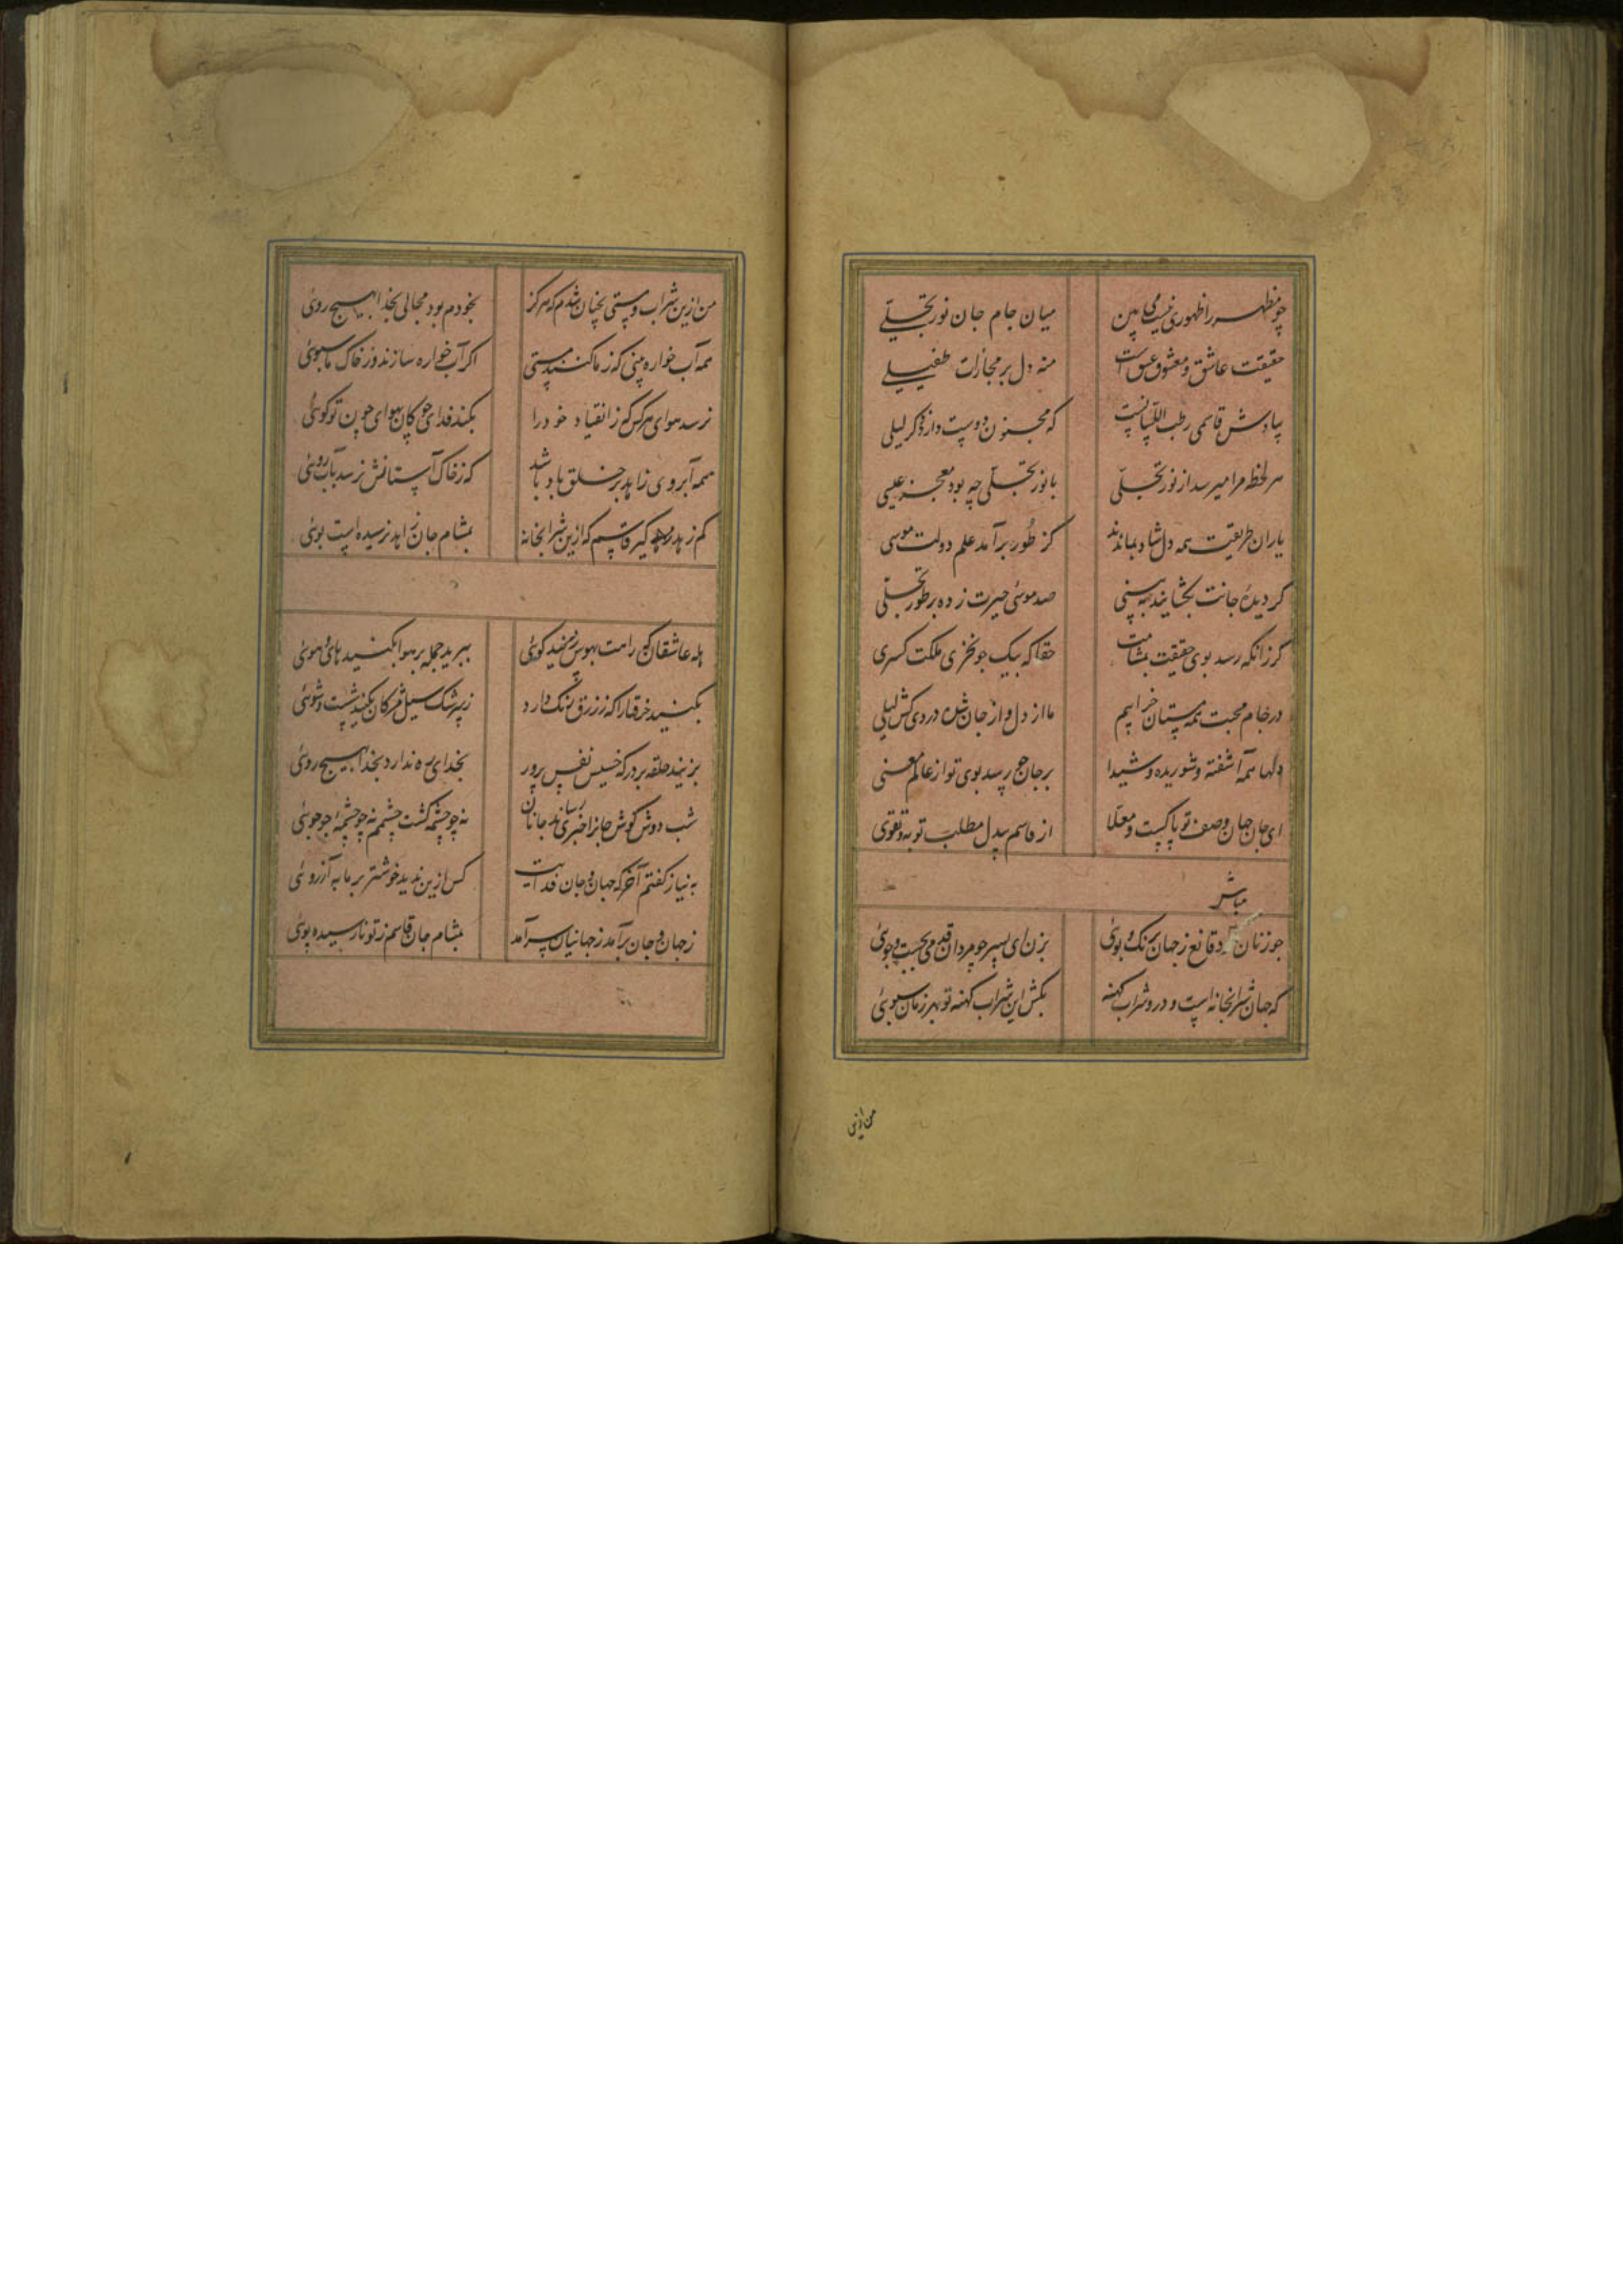 چو مظهر را ظهوری نیست می‌بین میان جام جان نور تجلی
حقیقت عاشق و معشوق عشق است منه دل بر مجازات طفیلی
بیادش قاسمی رطب اللسانست که مجنون دوست دارد ذکر لیلی
هر لحظه مرا میرسد از نور تجلی با نور تجلی چه بود معجز عیسی
یاران طریقت همه دل شاد بمانند کز طور برآمد علم دولت موسی
گر دیدۀ جانت بگشایند ببینی صد موسی حیرت زده بر طور تجلی
گر زانکه رسد بوی حقیقت بمشامت حقا که بیک جو نخری ملکت کسری
در جام محبت همه مستان خرابیم ما از دل و از جان شده دردی کش لیلی
دلها همه آشفته و شوریده و شیدا بر جان چو رسد بوی تو از عالم معنی
ای جان جهان وصف تو پاکست و معلا از قاسم بیدل مطلب توبه و تقوی
مباش
چو زنان قانع ز جهان برنگ و بوئی بزن ای پسر چو مردان قدمی بجست و جوئی
که جهان شرابخانه است و درو شراب کهنه بکش این شراب کهنه تو بهر زمان سبوئی
من ازین
من ازین شراب و مستی بچنان شدم که هرگز بخودم بود مجالی بخدا بهیچ روئی
همه آب خواره بینی که ز ما کنند مستی اگر آب خواره سازند و ز خاک ما سبوئی
نرسد هوای هر کس که ز انقیاد خود را بکند فدای چوگان بهوای چون تو گوئی
همه آبروی زاهد بر خلق باد باشد که ز خاک آستانش نرسد بآب روئی
کم زهد گیر قاسم که ازین شرابخانه بمشام جان زاهد نرسیده است بوئی
هله عاشقان که رامت بهوس زنید گوئی ببرید جمله بر هوا بکنید های و هوئی
بکنید خرقها را که ز زرق ننگ دارد ز سرشک سیل مژگان بکنید شست و شوئی
بزنید حلقه بر در که خسیس نفس پرور بخدای ره ندارد بخدا بهیچ روئی
شب دوش گوش جانرا خبری رساند جانان نه چو چشمه گشت چشمم نه چو چشمۀ چو جوئی
به نیاز گفتم آخر که جهان و جان فدایت کس ازین ندید خوشتر بر ما به آرزوئی
ز جهان و جان برآمد ز جهانیان سرآمد بمشام جان قاسم ز تو نارسیده بوئی